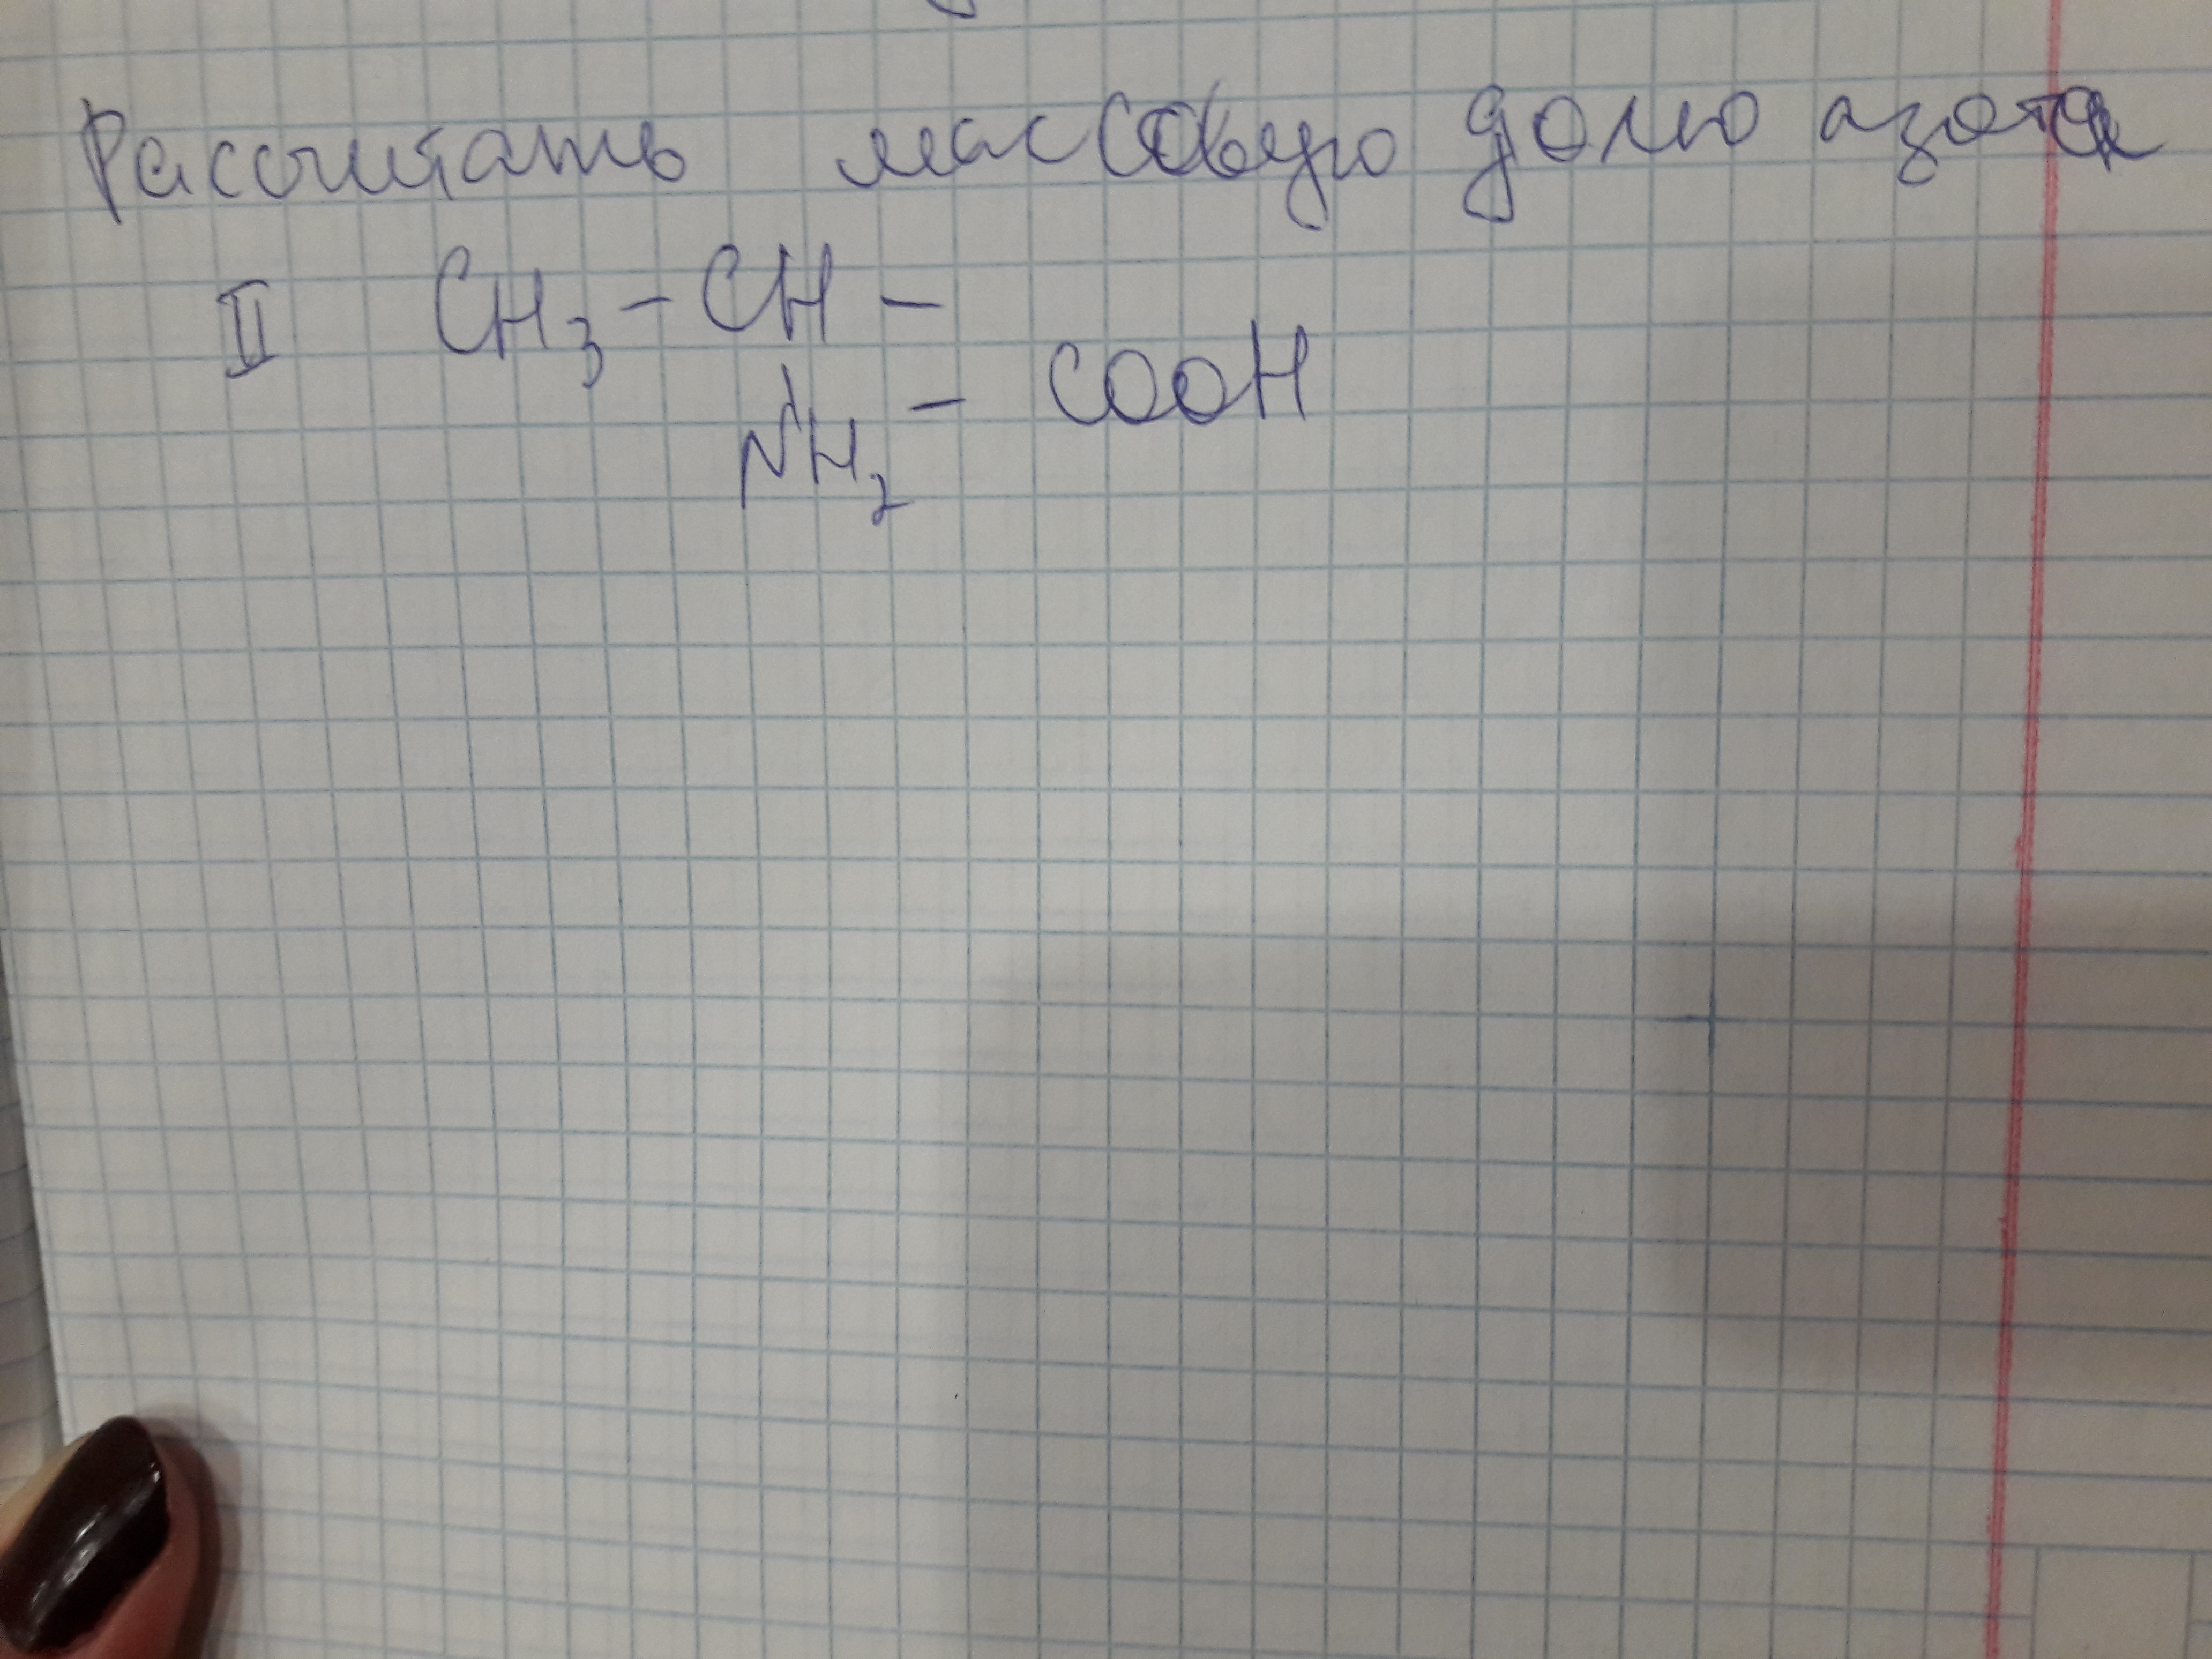 Рассчитать массовую долю азота
II CH₃ - CH -
NH₂ - COOH